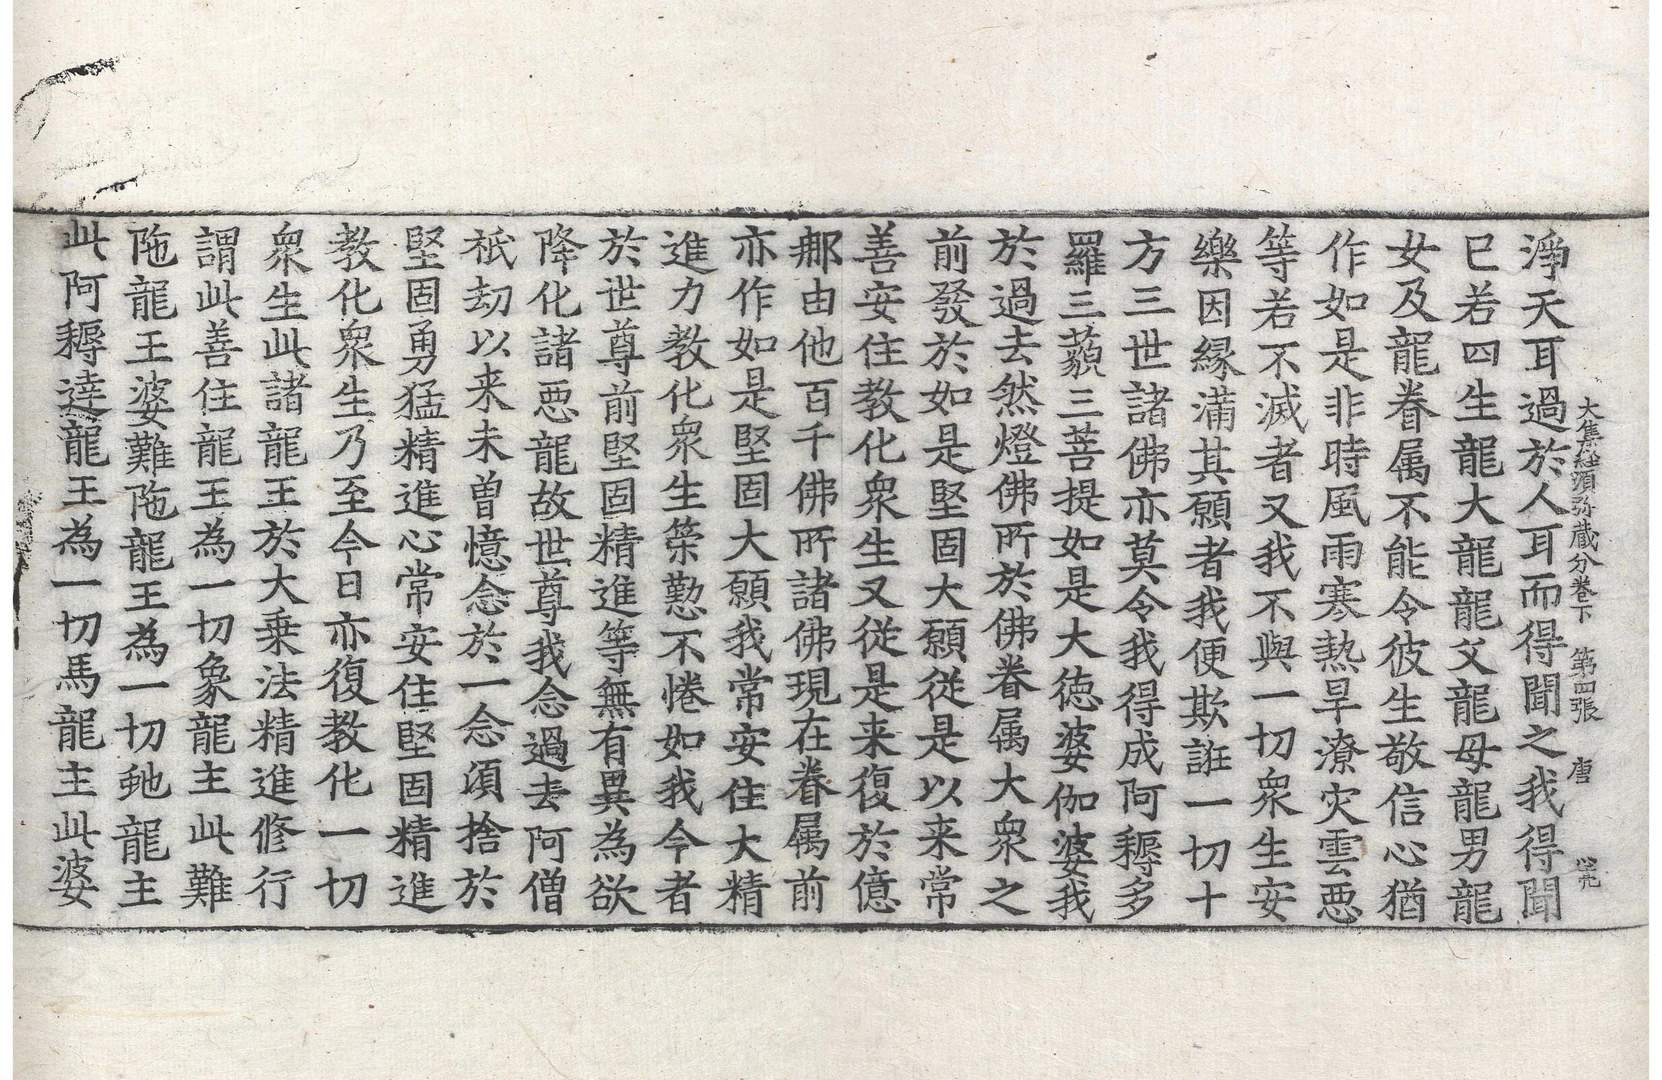 大集經湏弥蔵分卷下　第四張　唐
淨天耳過於人耳而得聞之我得聞
已若四生龍大龍龍父龍母龍男龍
女及龍眷属不能令彼生敬信心猶
作如是非時風雨寒熱旱潦灾雲惡
等若不滅者又我不與一切衆生安
樂因縁滿其願者我便欺誑一切十
方三世諸佛亦莫令我得成阿耨多
羅三藐三菩提如是大徳婆伽婆我
於過去然燈佛所於佛眷属大衆之
前發於如是堅固大願従是以来常
善安住教化衆生又従是来復於億
那由他百千佛所諸佛現在眷属前
亦作如是堅固大願我常安住大精
進力教化衆生策懃不惓如我今者
於世尊前堅固精進等無有異為欲
降化諸惡龍故世尊我念過去阿僧
祇劫以来未曾憶念於一念湏捨於
堅固勇猛精進心常安住堅固精進
教化衆生乃至今日亦復教化一切
衆生此諸龍王於大乗法精進修行
謂此善住龍王為一切象龍主此難
陁龍王婆難陁龍王為一切虵龍主
此阿耨達龍王為一切馬龍主此婆